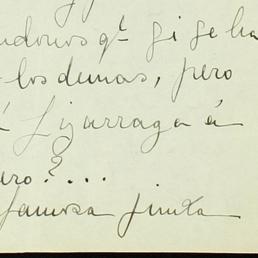 qᵗ si se ha
los demas, pero
Lizarraga á
ero?....
famosa junta